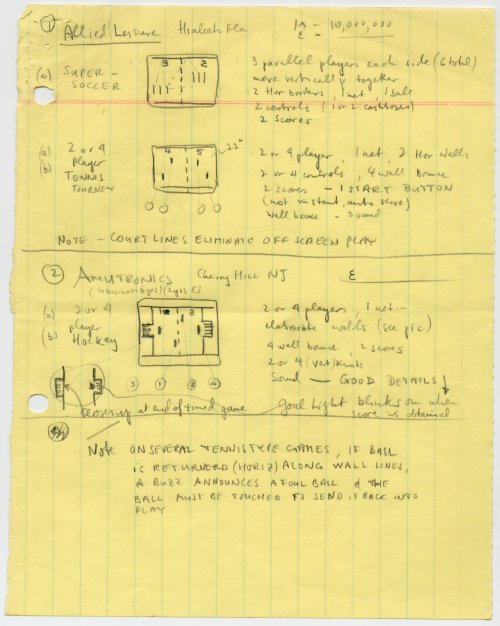 ① Allied Leisure Hialeah Fla M - 10,000,000
E -
(a) SUPER-
SOCCER
3 2
3 parallel players each side (6 total)
move vertically together
2 Hor borders, 1 net, 1 ball
2 controls (1 or 2 cashboxes)
2 scores
(a) 2 or 4
(b) player
TENNIS
TOURNEY
4 5
22"
2 or 4 player, 1 net, 2 Hor walls
2 or 4 controls, 4 wall bounce
2 scores - 1 START BUTTON
(not instant, auto serve)
Wall bounce - sound
NOTE - COURT LINES ELIMINATE OFF SCREEN PLAY
② AMUTRONICS Cherry Hill NJ E
(in business 8 yrs) (2 yrs E)
(a) 2 or 4
(b) player
Hockey
2
3 1 2 4
2 or 4 players, 1 net -
elaborate walls (see pic)
4 wall bounce, 2 scores
2 or 4 (vert) knobs
Sound - GOOD DETAILS
closeup at end of timed game
Goal Light blinks on when
score is obtained
Note ON SEVERAL TENNIS TYPE GAMES, IF BALL
IS RETURNERD (HORIZ) ALONG WALL LINES,
A BUZZ ANNOUNCES A FOUL BALL & THE
BALL MUST BE TOUCHED TO SEND IT BACK INTO
PLAY